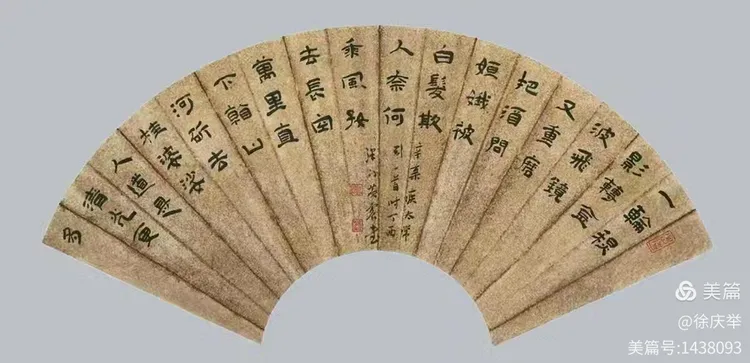 一輪秋
影轉金
波飛鏡
又重磨
把酒問
姮娥被
白髮欺
人奈何
乘風好
去長空
萬里直
下看山
河斫去
桂婆娑
人道是
清光更
多
辛棄疾太常
引一首时丁酉
美篇
@徐庆举
美篇号:1438093